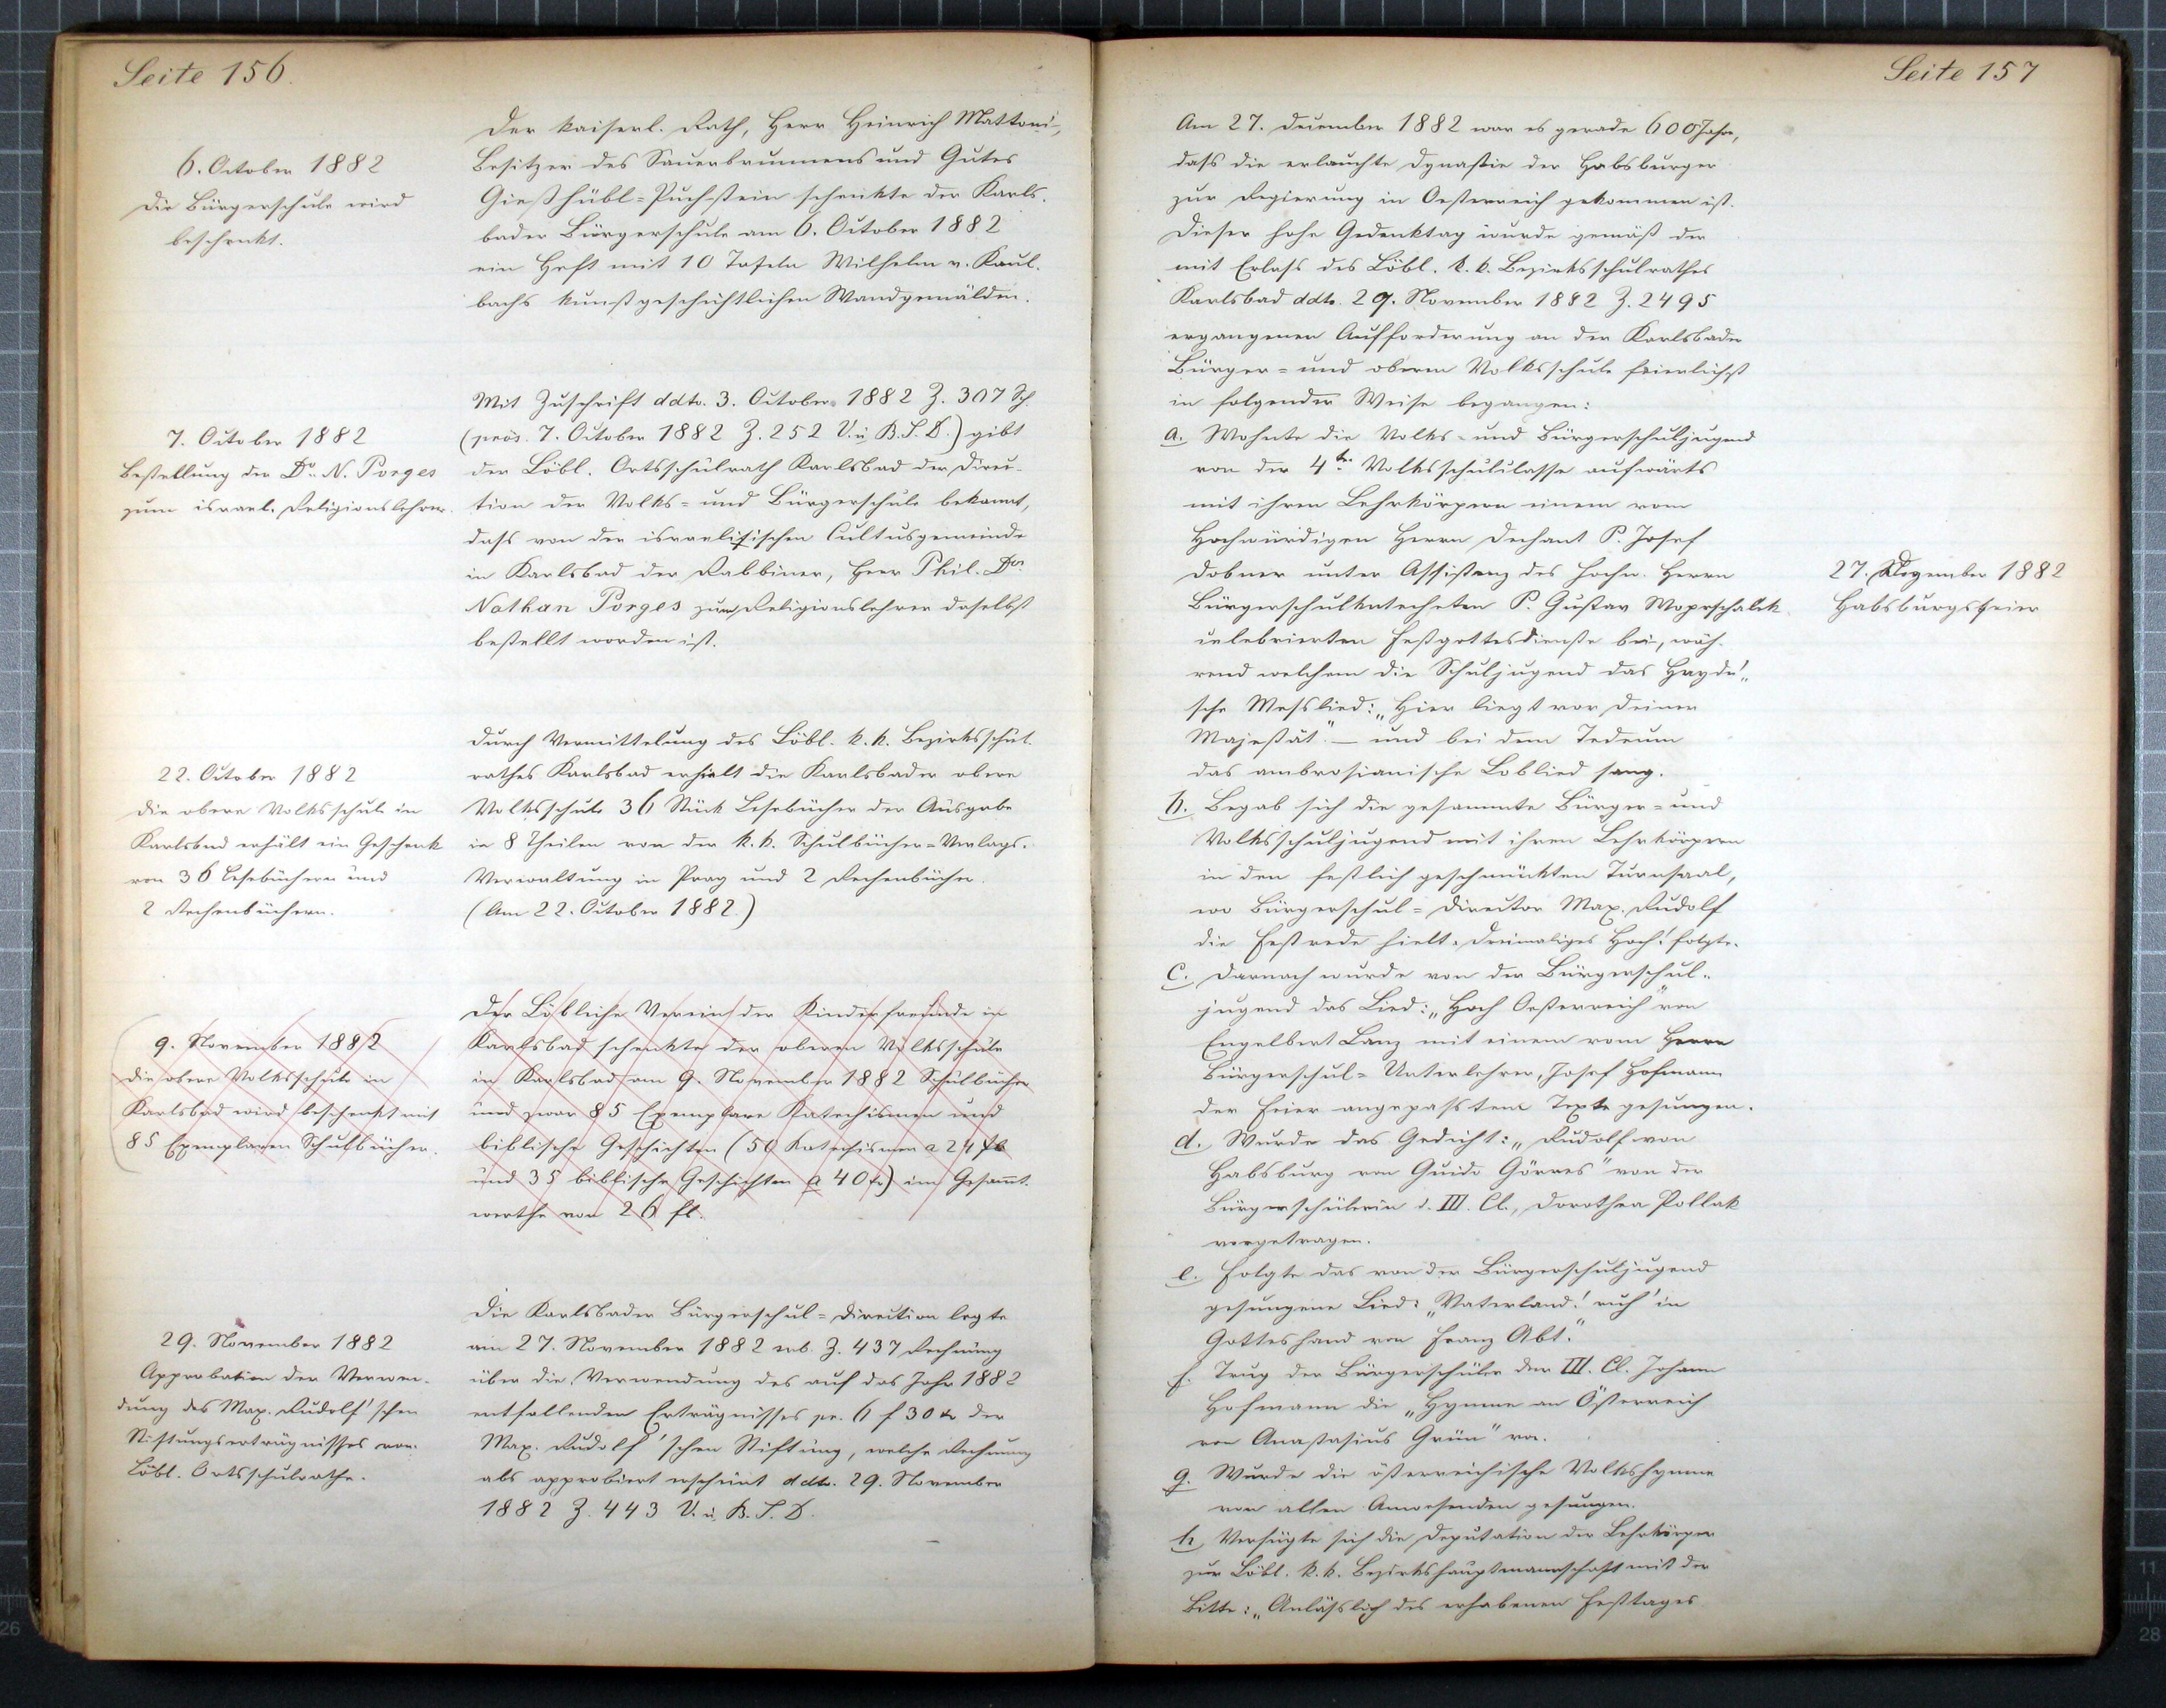 Seite 156.
6. October 1882
Die Bürgerschule wird
beschenkt.
Der kaiserl. Rath, Herr Heinrich Mattoni,
Besitzer des Sauerbrunnens und Gutes
Gießhübl=Puchstein schenkte der Karls-
bader Bürgerschule am 6. October 1882
ein Heft mit 10 Tafeln Wilhelm v. Kaul-
bachs kunstgeschichtlichen Wandgemälden.
7. October 1882
Bestellung des Dr. N. Porges
zum israel. Religionslehrer.
Mit Zuschrift ddto. 3. October 1882 Z. 307 Sch.
(präs. 7. October 1882 Z. 252 V. u. B. S. D.) gibt
der Löbl. Ortsschulrath Karlsbad der Direc-
tion der Volks= und Bürgerschule bekannt,
dass von der israelitischen Cultusgemeinde
in Karlsbad der Rabbiner, Herr Phil. Dr.
Nathan Porges zum Religionslehrer daselbst
bestellt worden ist.
22. October 1882
Die obere Volksschule in
Karlsbad erhält ein Geschenk
von 36 Lesebüchern und
2 Rechenbüchern.
Durch Vermittelung des Löbl. k. k. Bezirksschul-
rathes Karlsbad erhielt die Karlsbader obere
Volksschule 36 Stück Lesebücher der Ausgabe
in 8 Theilen von der k. k. Schulbücher=Verlags-
Verwaltung in Prag und 2 Rechenbücher.
(Am 22. October 1882.)
9. November 1882
Die obere Volksschule in
Karlsbad wird beschenkt mit
85 Exemplaren Schulbücher.
Der Löbliche Verein der Kinderfreunde in
Karlsbad schenkte der oberen Volksschule
in Karlsbad am 9. November 1882 Schulbücher
und zwar 85 Exemplare Katechismen und
biblische Geschichten (50 Katechismen a 24 kr
und 35 biblische Geschichten a 40 kr) im Gesamt-
werthe von 26 fl.
29. November 1882
Approbation der Verwen-
dung des Max. Rudolf'schen
Stiftungserträgnisses vom
Löbl. Ortsschulrathe.
Die Karlsbader Bürgerschul=Direction legte
am 27. November 1882 sub. Z. 437 Rechnung
über die Verwendung des auf das Jahr 1882
entfallenden Erträgnisses pr. 6 f 30 kr der
Max. Rudolf'schen Stiftung, welche Rechnung
als approbiert erscheint ddto. 29. November
1882 Z. 443 V. u. B. S. D.
Seite 157
Am 27. December 1882 war es gerade 600 Jahre,
dass die erlauchte Dynastie der Habsburger
zur Regierung in Oesterreich gekommen ist.
Dieser hohe Gedenktag wurde gemäß der
mit Erlass des Löbl. k. k. Bezirksschulrathes
Karlsbad ddto. 29. November 1882 Z. 2495
ergangenen Aufforderung an der Karlsbader
Bürger= und oberen Volksschule feierlichst
in folgender Weise begangen:
a. Wohnte die Volks- und Bürgerschuljugend
von der 4ten Volksschulclasse aufwärts
mit ihren Lehrkörpern einem vom
Hochwürdigen Herrn Dechant P. Josef
Dobner unter Assistenz des hochw. Herrn
Bürgerschulkatecheten P. Gustav Woprschalek
celebrierten Festgottesdienste bei, wäh-
rend welchem die Schuljugend das Haydn'-
sche Messlied: „Hier liegt vor Deiner
Majestät" — und bei dem Tedeum
das ambrosianische Loblied sang.
b. Begab sich die gesammte Bürger= und
Volksschuljugend mit ihren Lehrkörpern
in den festlich geschmückten Turnsaal,
wo Bürgerschul=Director Max. Rudolf
die Festrede hielt. Dreimaliges Hoch! folgte.
c. Darnach wurde von der Bürgerschul-
jugend das Lied: „Hoch Oesterreich" von
Engelbert Lanz mit einem vom Herrn
Bürgerschul=Unterlehrer, Josef Hofmann
der Feier angepassten Texte gesungen.
d. Wurde das Gedicht: „Rudolf von
Habsburg von Guido Görres" von der
Bürgerschülerin d. III. Cl., Dorothea Pollak
vorgetragen.
e. Folgte das von der Bürgerschuljugend
gesungene Lied: „Vaterland! ruh' in
Gotteshand von Franz Abt."
f. Trug der Bürgerschüler der III. Cl. Johann
Hofmann die „Hymne an Österreich
von Anastasius Grün" vor.
g. Wurde die österreichische Volkshymne
von allen Anwesenden gesungen.
h. Verfügte sich die Deputation der Lehrkörper
zur Löbl. k. k. Bezirkshauptmannschaft mit der
Bitte: „Anlässlich des erhabenen Festtages
27. Dezember 1882
Habsburgsfeier